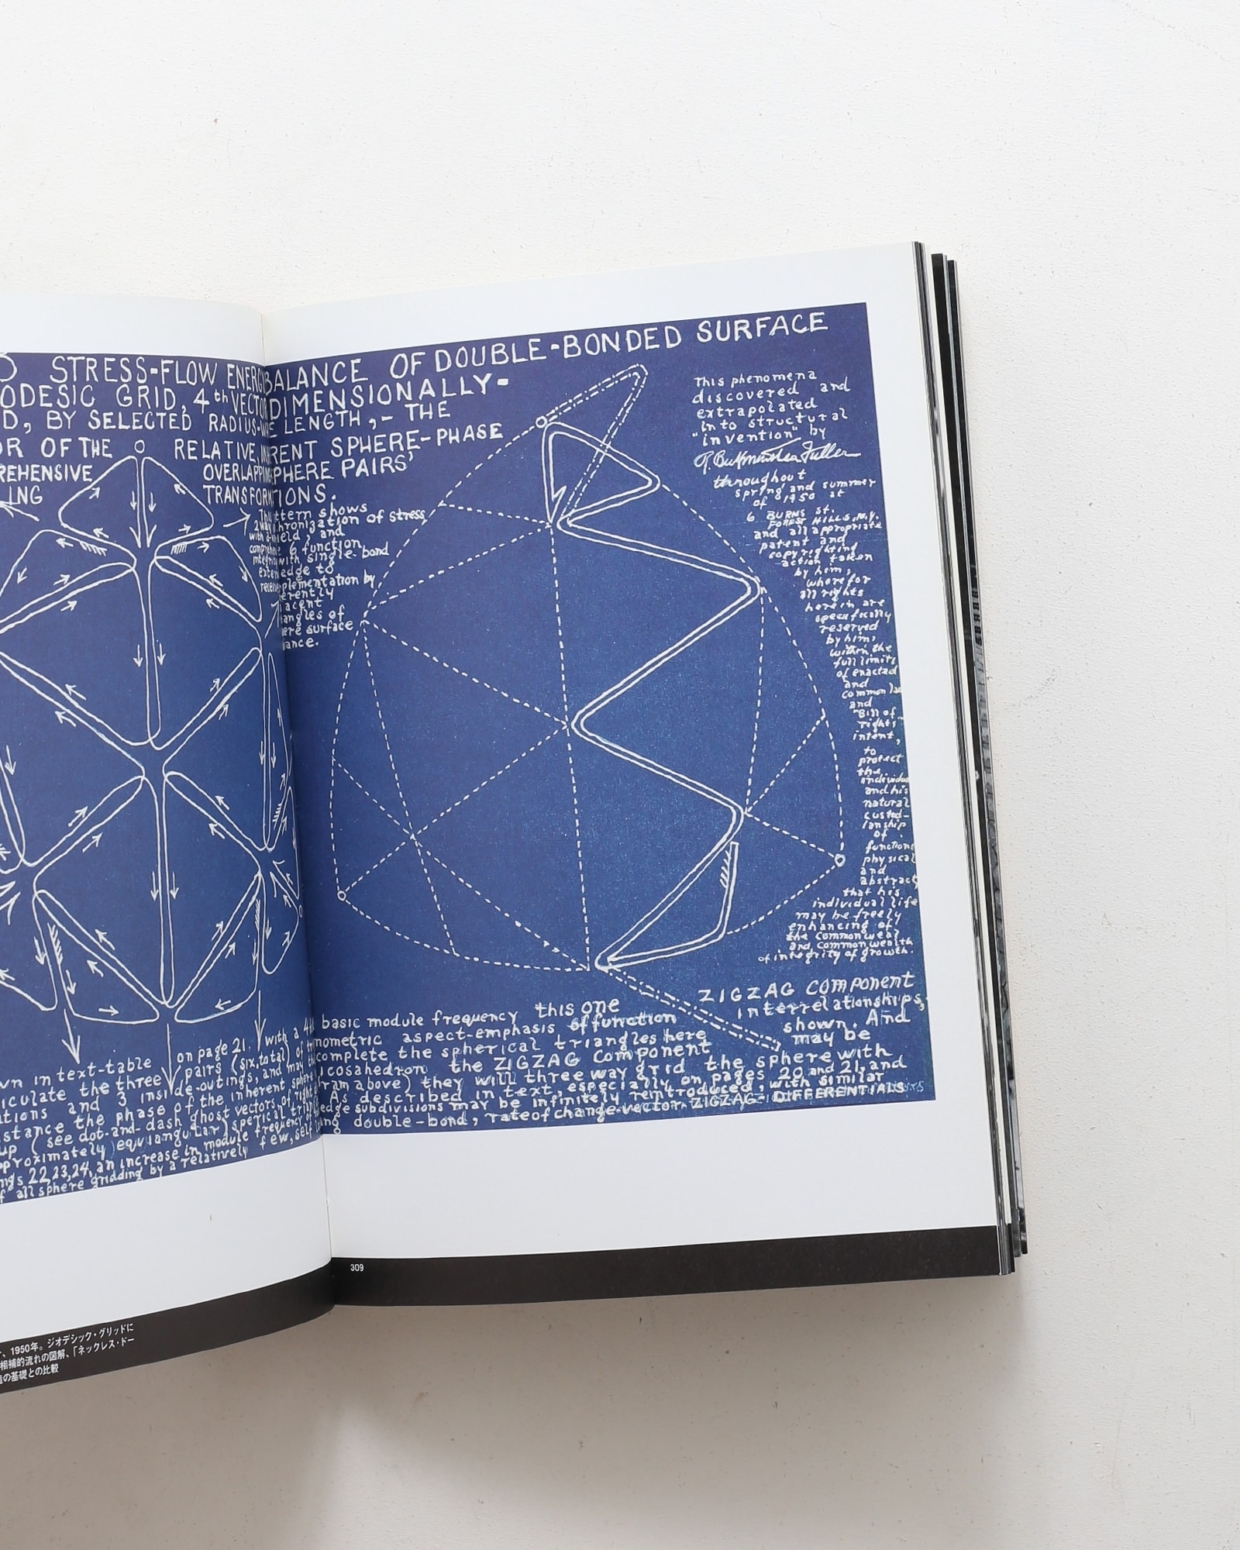 STRESS-FLOW ENERG BALANCE OF DOUBLE-BONDED SURFACE
ODESIC GRID, 4th VECTO DIMENSIONALLY-
D, BY SELECTED RADIUS- E LENGTH,- THE
OR OF THE RELATIVE, RENT SPHERE-PHASE
REHENSIVE OVERLAPPIN SPHERE PAIRS'
LING TRANSFOR TIONS.
tern shows
chronization of stress
ield, and
6 function
with single-bond
edge to
plementation by
erently
jacent
angles of
ere surface
ance.
This phenomena
discovered and
extrapolated
into structural
"invention" by
R. Buckminster Fuller
throughout
spring and summer
of 1950 at
6 BURNS St.
FOREST HILLS, N.Y.
and all appropriate
patent and
copyrighting
action taken
by him,
wherefor
all rights
herein are
specifically
reserved
by him,
within the
full limits
of enacted
and
common la
and
"Bill of-
rights"
intent,
to
protect
the
individu
and his
natural
custod-
ianship
of
function
physical
and
abstract
that his
individual life
may be freely
enhancing of
the commonweal
and commonwealth
of integrity of growth.
ZIGZAG COMPONENT
interrelationships,
shown. And
may be
the sphere with
on pages 20 and 21, and
with similar
ZIGZAG-DIFFERENTIALS
basic module frequency this one
nometric aspect-emphasis of function
complete the spherical triangles here
icosahedron the ZIGZAG Component
ram above) they will three way grid
As described in text especially
edge subdivisions may be infinitely reintroduced;
ng double-bond, rate of change-vector
wn in text-table on page 21. with a 4
iculate the three pairs (six, total) of
ations and 3 inside-outings, and may
stance the phase of the inherent sphere
up (see dot-and-dash ghost vectors of
pproximately equiangular) sperical tri
ngs 22,23,24, an increase in module frequency
f all sphere gridding by a relatively few, self
309
、1950年。ジオデシック・グリッドに
相補的流れの図解、「ネックレス・ドー
の基礎との比較